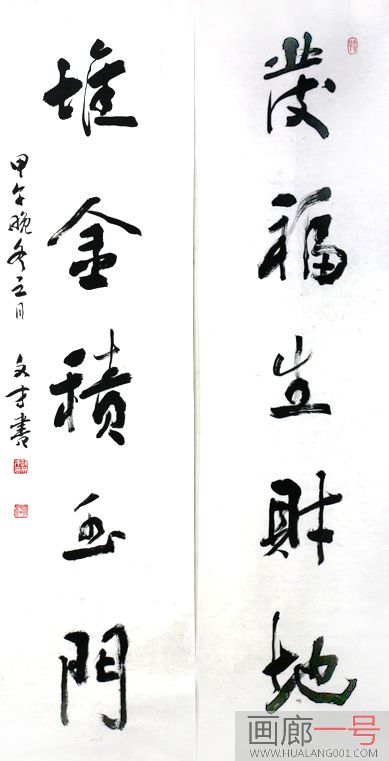 發福生財地
堆金積玉門
甲午晚冬之月 文才書
画廊一号
WWW.HUALANG001.COM